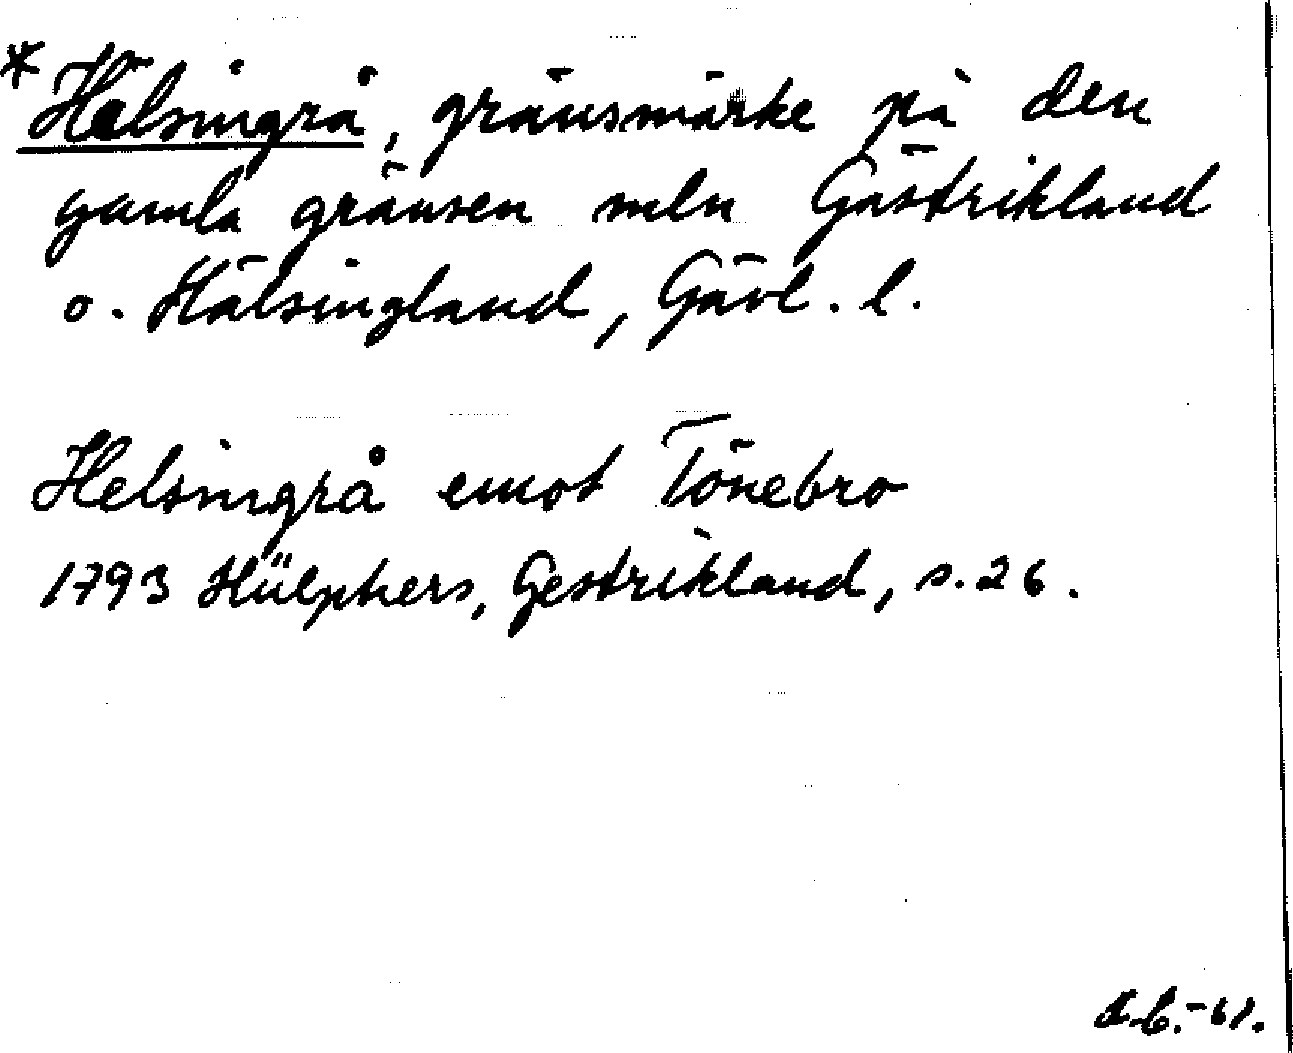 *Hälsingrå, gränsmärke på den
gamla gränsen mln Gästrikland
o. Hälsingland, Gävl. l.
Helsingrå emot Tönebro
1793 Hülphers, Gestrikland, s. 26.
-61.